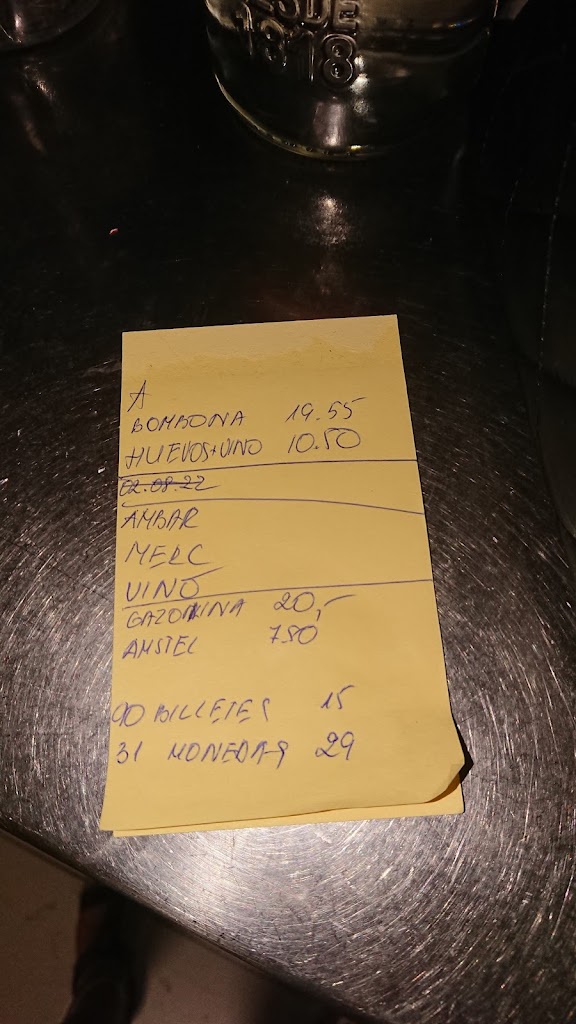 DESDE
1318
A
BOMBONA 19.55
HUEVOS+VINO 10.50
02.08.22
AMBAR
MERC
VINO
GAZOLINA 20,-
AMSTEL 7.50
90 BILLETES 15
31 MONEDAS 29